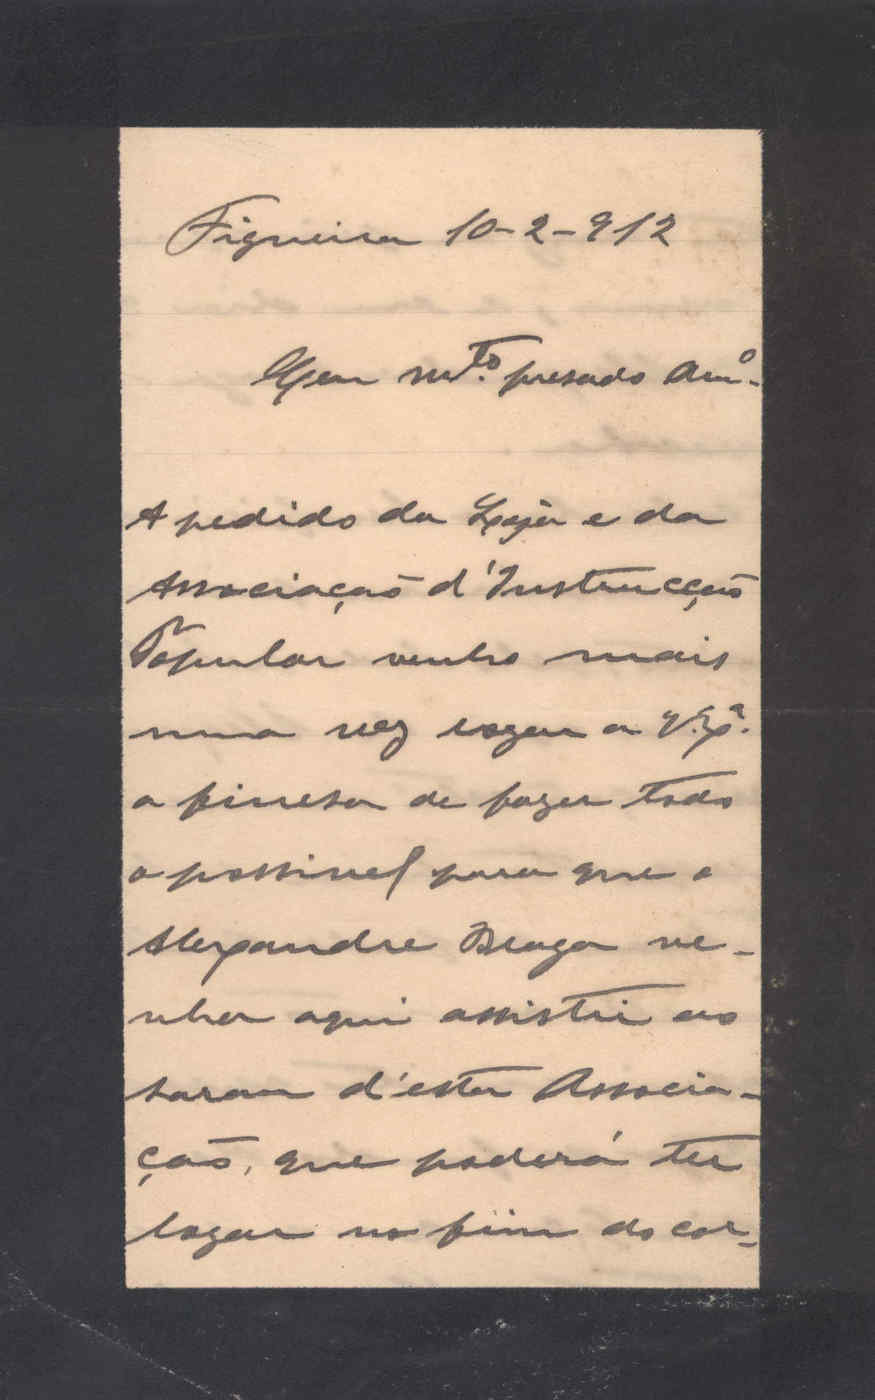 Figueira 10-2-912
Meu mto. presado Amº.
A pedido da Loja e da
Associação d'Instrucção
Popular venho mais
uma vez rogar a V. Exª.
a finesa de fazer todo
o possivel para que o
Alexandre Braga ve-
nha aqui assistir ao
sarau d'esta Associa-
ção, que poderá ter
logar no fim do cor-